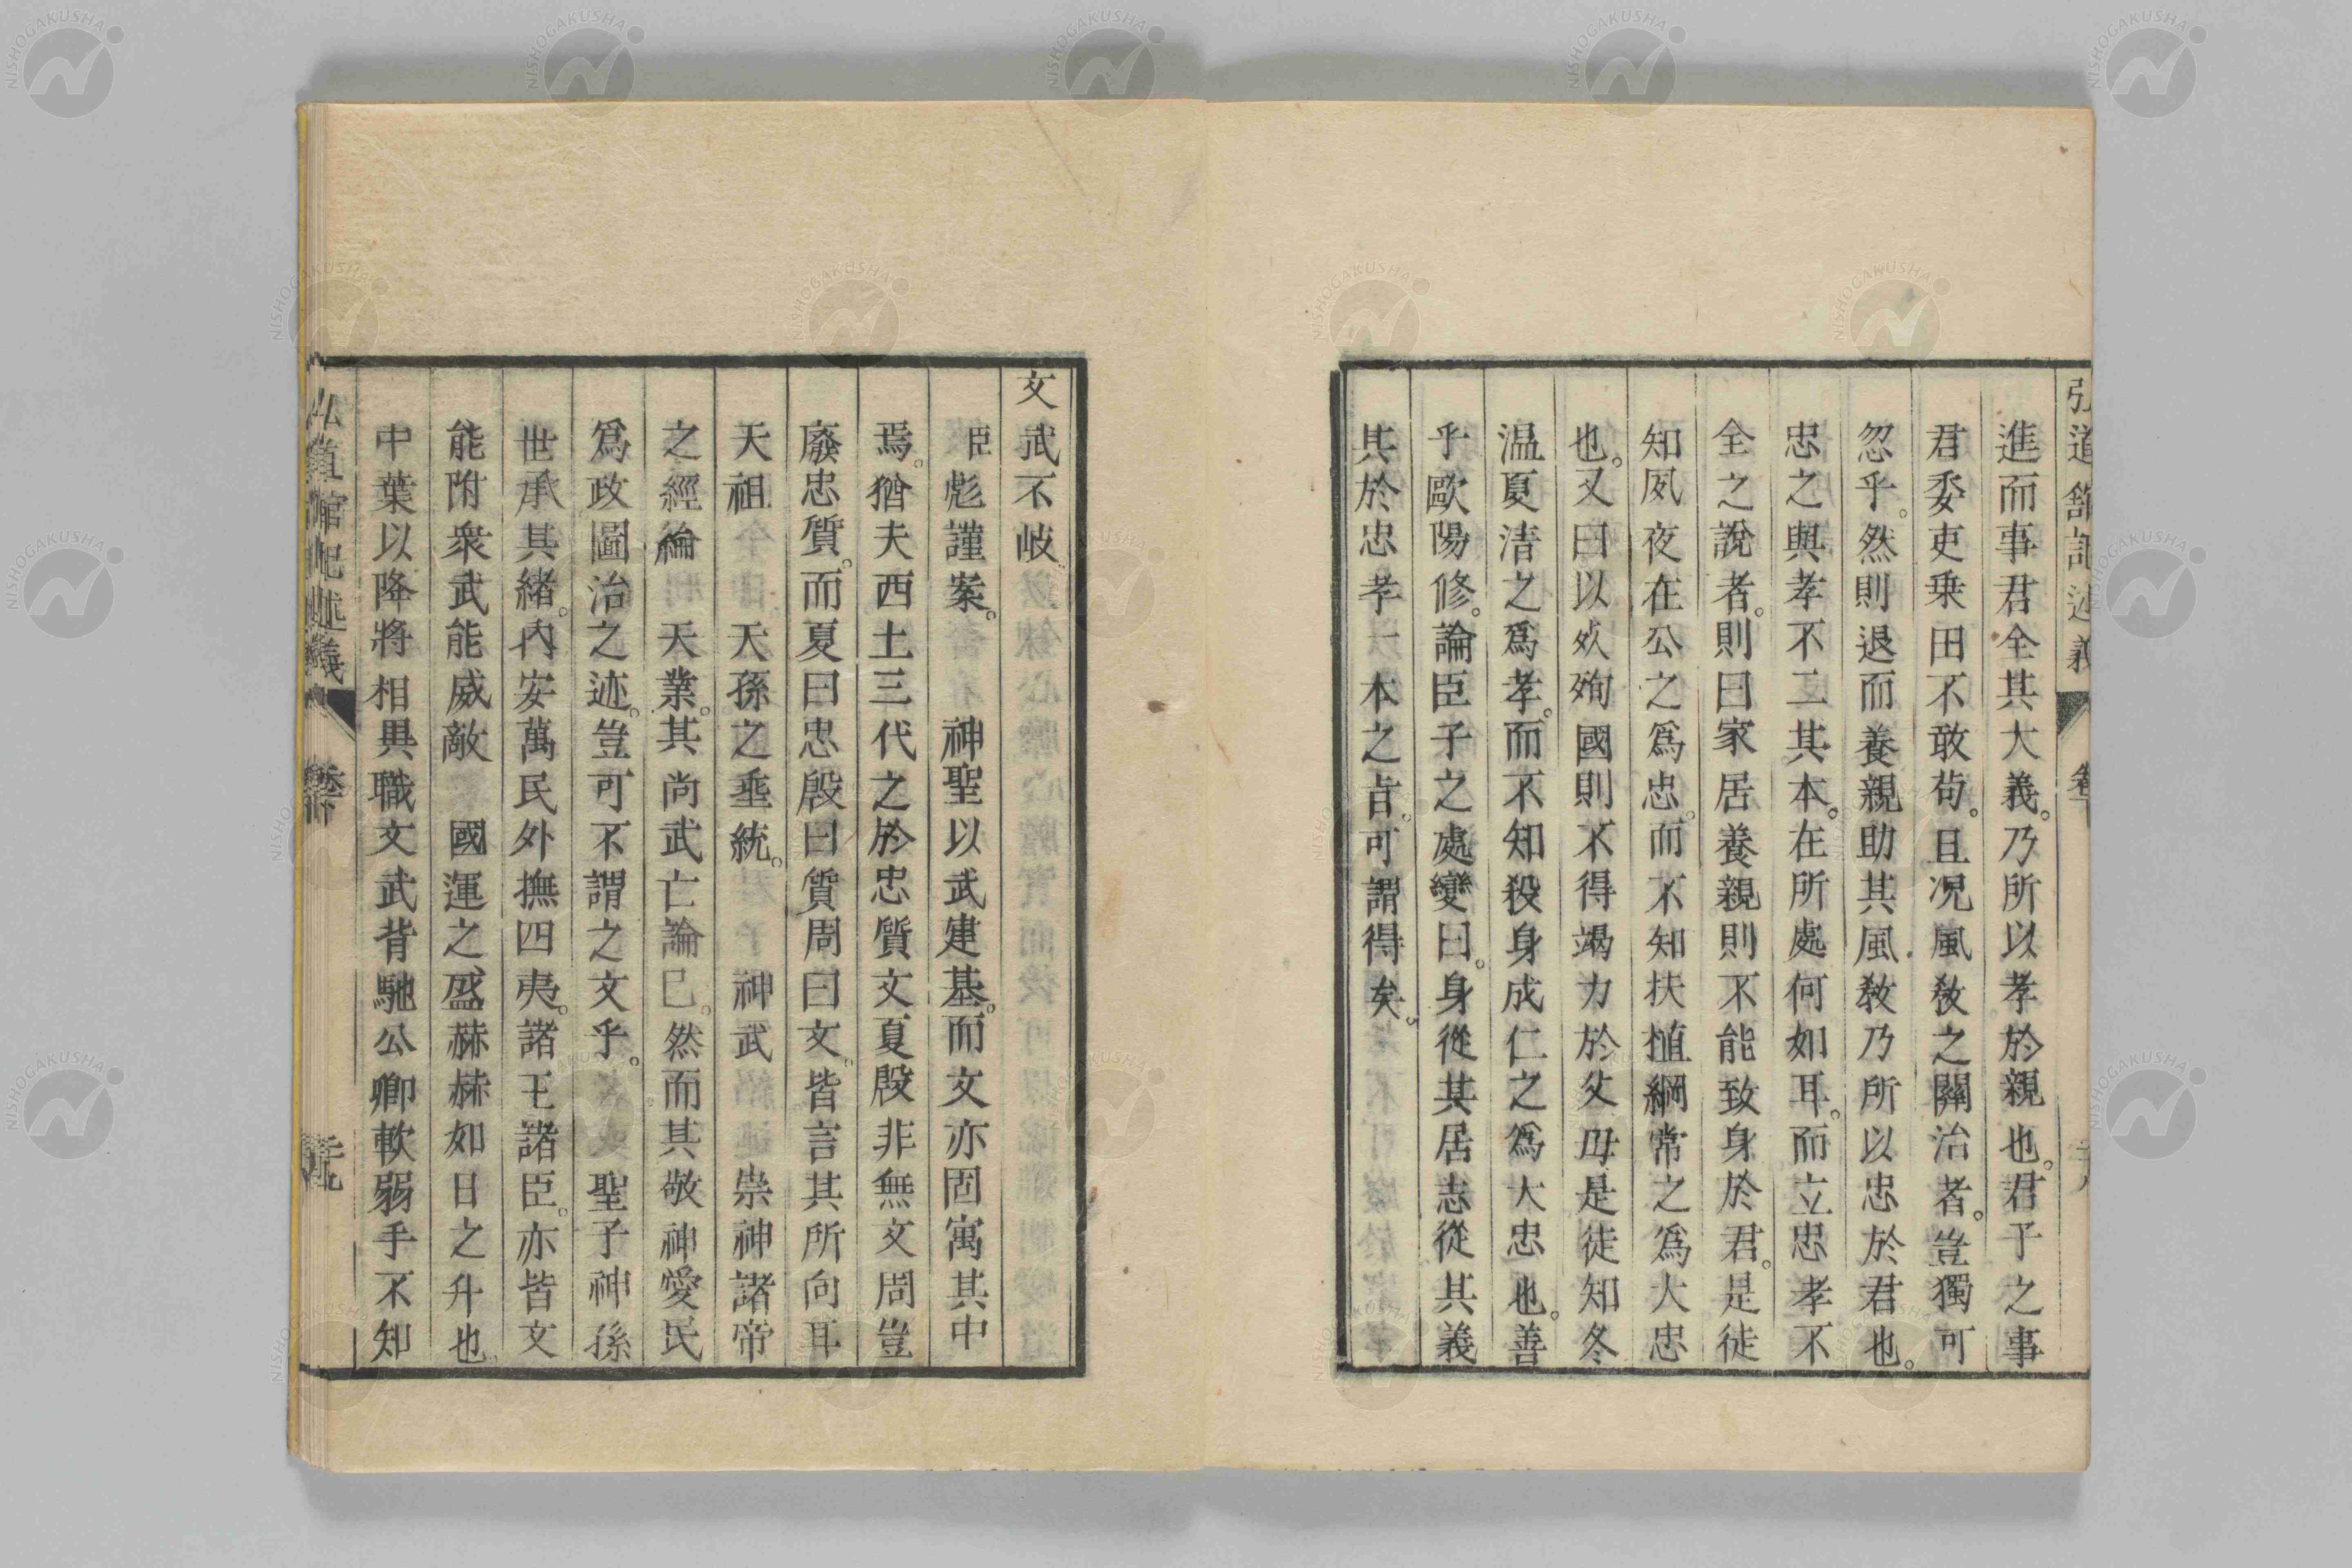 弘道館記述義 卷下
進而事君全其大義。乃所以孝於親也。君子之事
君委吏乗田不敢苟。且况風敎之關治者。豈獨可
忽乎。然則退而養親助其風敎乃所以忠於君也。
忠之與孝不二其本。在所處何如耳。而立忠孝不
全之說者。則曰家居養親則不能致身於君。是徒
知夙夜在公之爲忠。而不知扶植綱常之爲大忠
也。又曰以死殉國則不得竭力於父母是徒知冬
温夏凊之爲孝。而不知殺身成仁之爲大忠也。善
乎歐陽修。論臣子之處變曰。身從其居志從其義
其於忠孝一本之旨。可謂得矣。
文武不岐
臣彪謹案。神聖以武建基。而文亦固寓其中
焉。猶夫西土三代之於忠質文夏殷非無文周豈
廢忠質。而夏曰忠殷曰質周曰文。皆言其所向耳
天祖 天孫之垂統。 神武 崇神諸帝
之經綸 天業。其尚武亡論已。然而其敬神愛民
爲政圖治之迹。豈可不謂之文乎。 聖子神孫
世承其緒。內安萬民外撫四夷。諸王諸臣。亦皆文
能附衆武能威敵 國運之盛赫赫如日之升也
中葉以降將相異職文武背馳公卿軟弱手不知
弘道館記述義 卷下